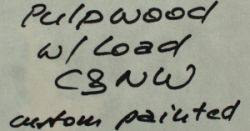 Pulpwood
w/Load
C&NW
custom painted